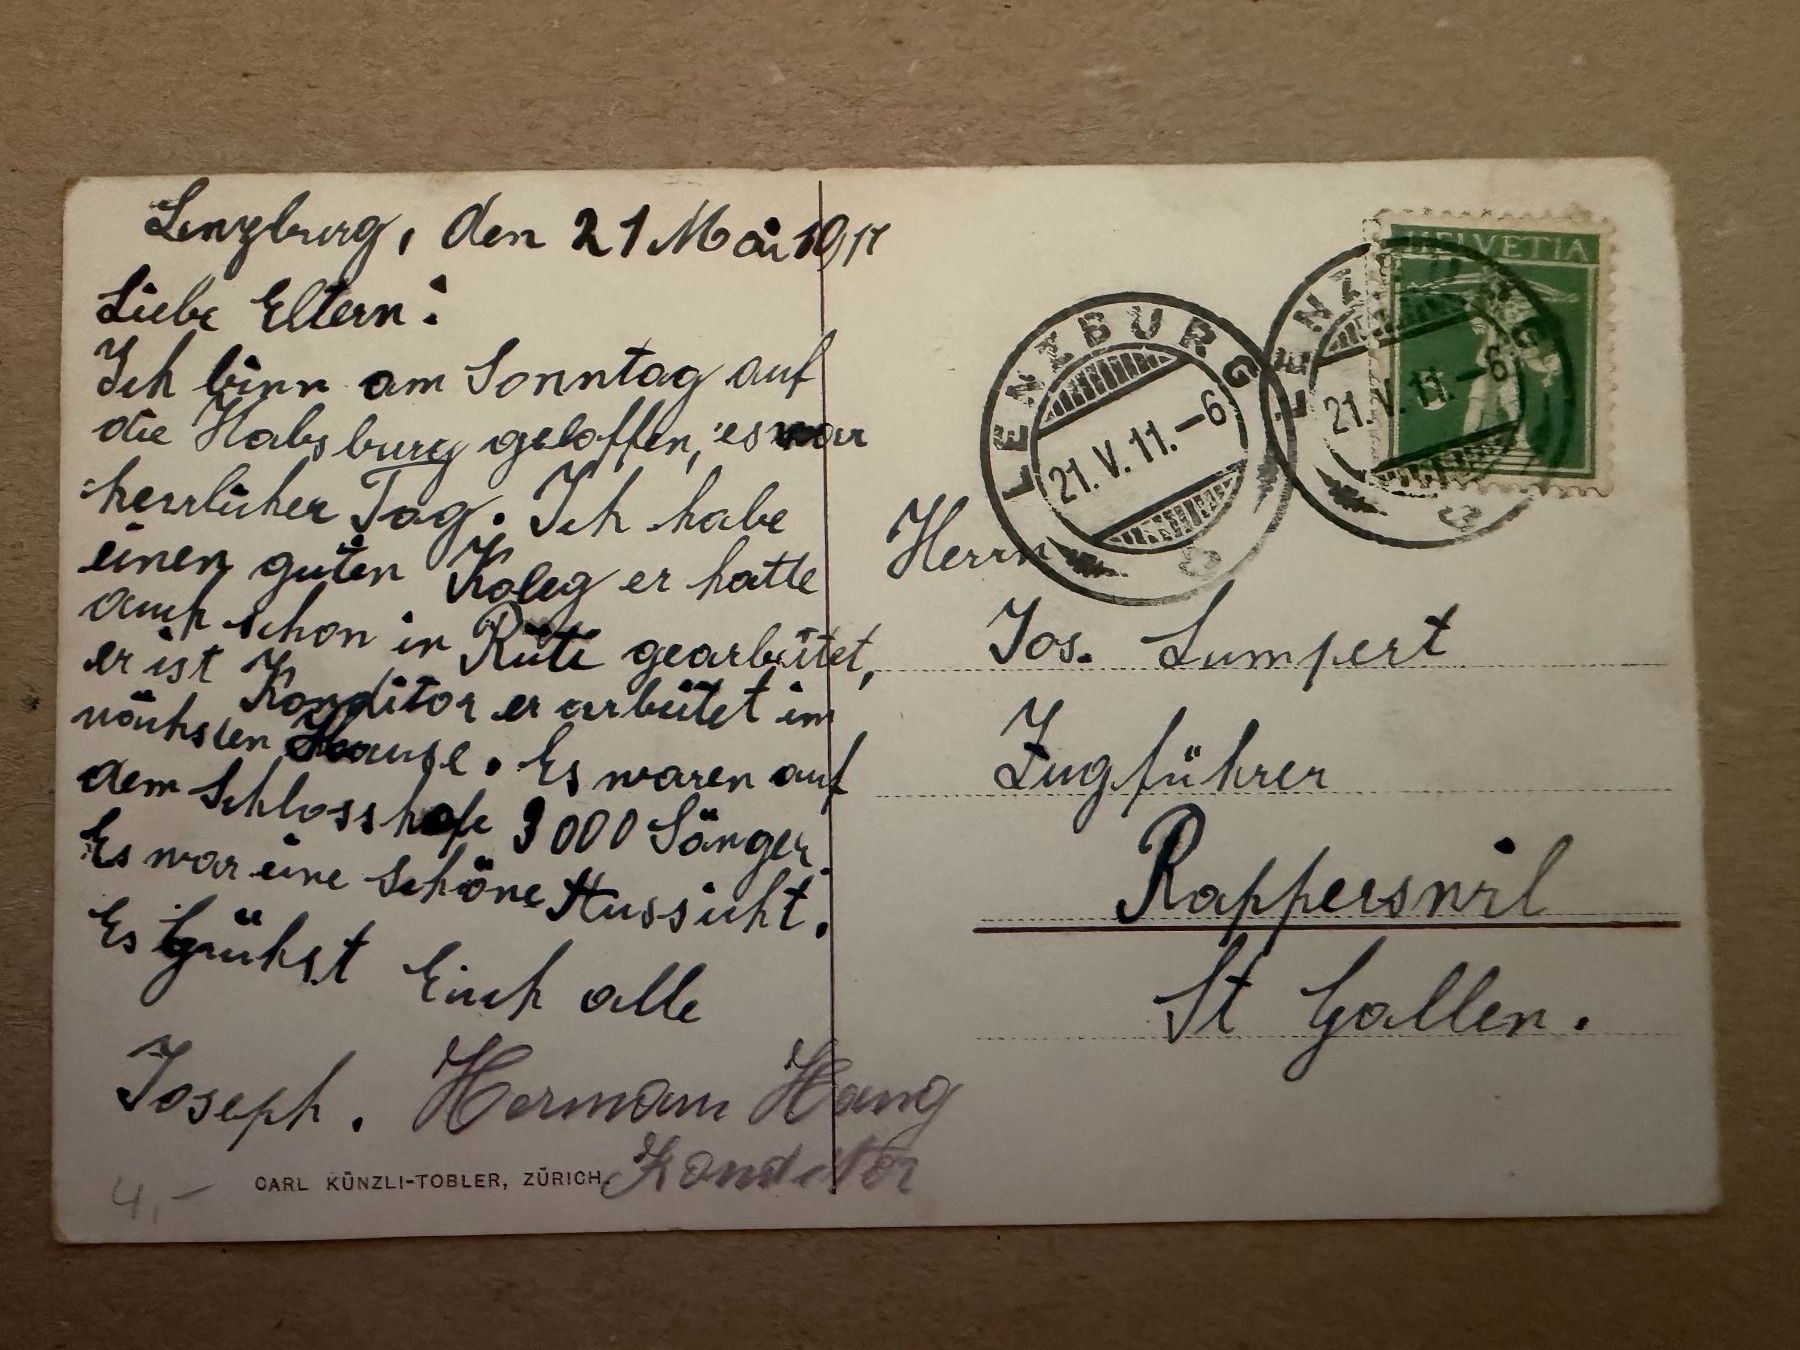 Lenzburg, den 21 Mai 1911
Liebe Eltern!
Ich binn am Sonntag auf
die Habsburg geloffen, es war
herrlicher Tag. Ich habe
einen guten Koleg er hatte
auch schon in Rüti gearbeitet,
er ist Konditor er arbeitet im
nächsten Hause. Es waren auf
dem Schlosshofe 3000 Sänger.
Es war eine schöne Aussicht.
Es grühst Euch alle
Joseph. Hermann Haug
Konditor
CARL KÜNZLI-TOBLER, ZÜRICH.
4,–
HELVETIA
LENZBURG
21.V.11.–6
LENZBURG
21.V.11.–6
Herrn
Jos. Lumpert
Zugführer
Rapperswil
St Gallen.